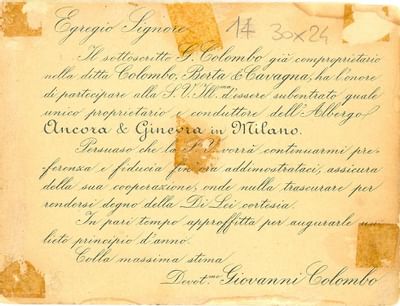 Egregio Signore
14 30x24
Il sottoscritto G. Colombo già comproprietario
nella ditta Colombo, Berta & Cavagna, ha l'onore
di partecipare alla S. V. Ill.ma d'essere subentrato quale
unico proprietario e conduttore dell'Albergo
Ancora & Ginevra in Milano.
Persuaso che la S. V. vorrà continuarmi pre-
ferenza e fiducia fin ora addimostrataci, assicura
della sua cooperazione, onde nulla trascurare per
rendersi degno della Di Lei cortesia.
In pari tempo approffitta per augurarle un
lieto principio d'anno.
Colla massima stima
Devot.mo Giovanni Colombo